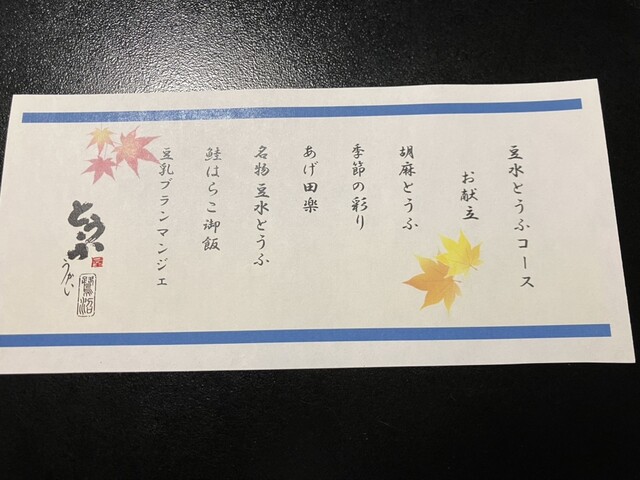 豆水とうふコース
お献立
胡麻とうふ
季節の彩り
あげ田楽
名物豆水とうふ
鮭はらこ御飯
豆乳ブランマンジェ
とうふ
屋
うかい
鷺沼